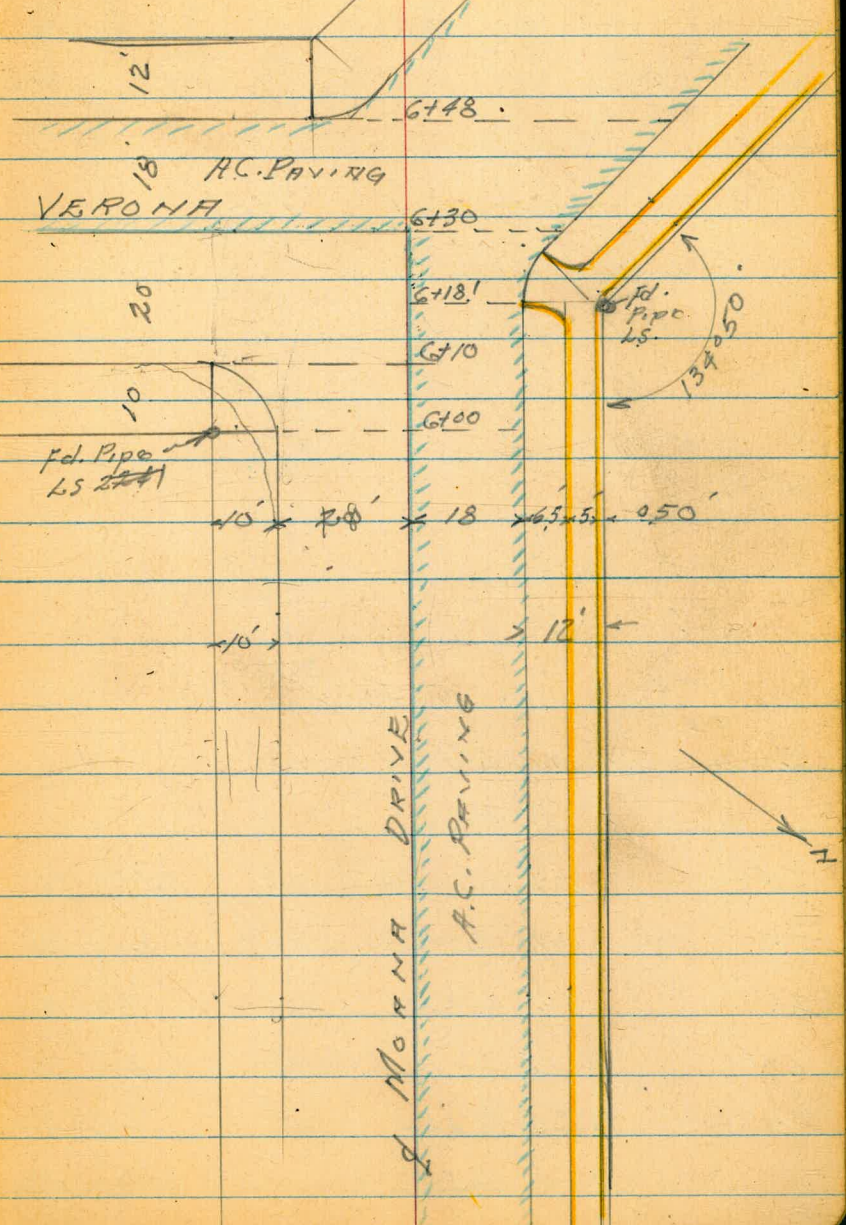 12'
6+48
18'
A.C. PAVING
VERONA
6+30
20
6+18'
Fd.
Pipe
LS.
134°50'
6+10
10
6+00
Fd. Pipe
LS
10' 28' 18 6.5' 5' 0.50'
12'
10'
℄ MOANA DRIVE
A.C. PAVING
N